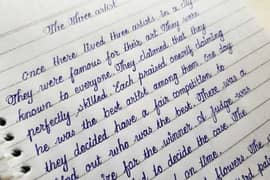 The three artist
Once there lived three artists in a city
They were famous for their art. They were
known to everyone. They claimed that they
perfectly skilled. Each praised oneself claiming
he was the best artist among them. One day
they decided have a fair competition to
find out who was the best. There was a
for the winner. A judge was
to decide the case. The
on time.
flowers. The